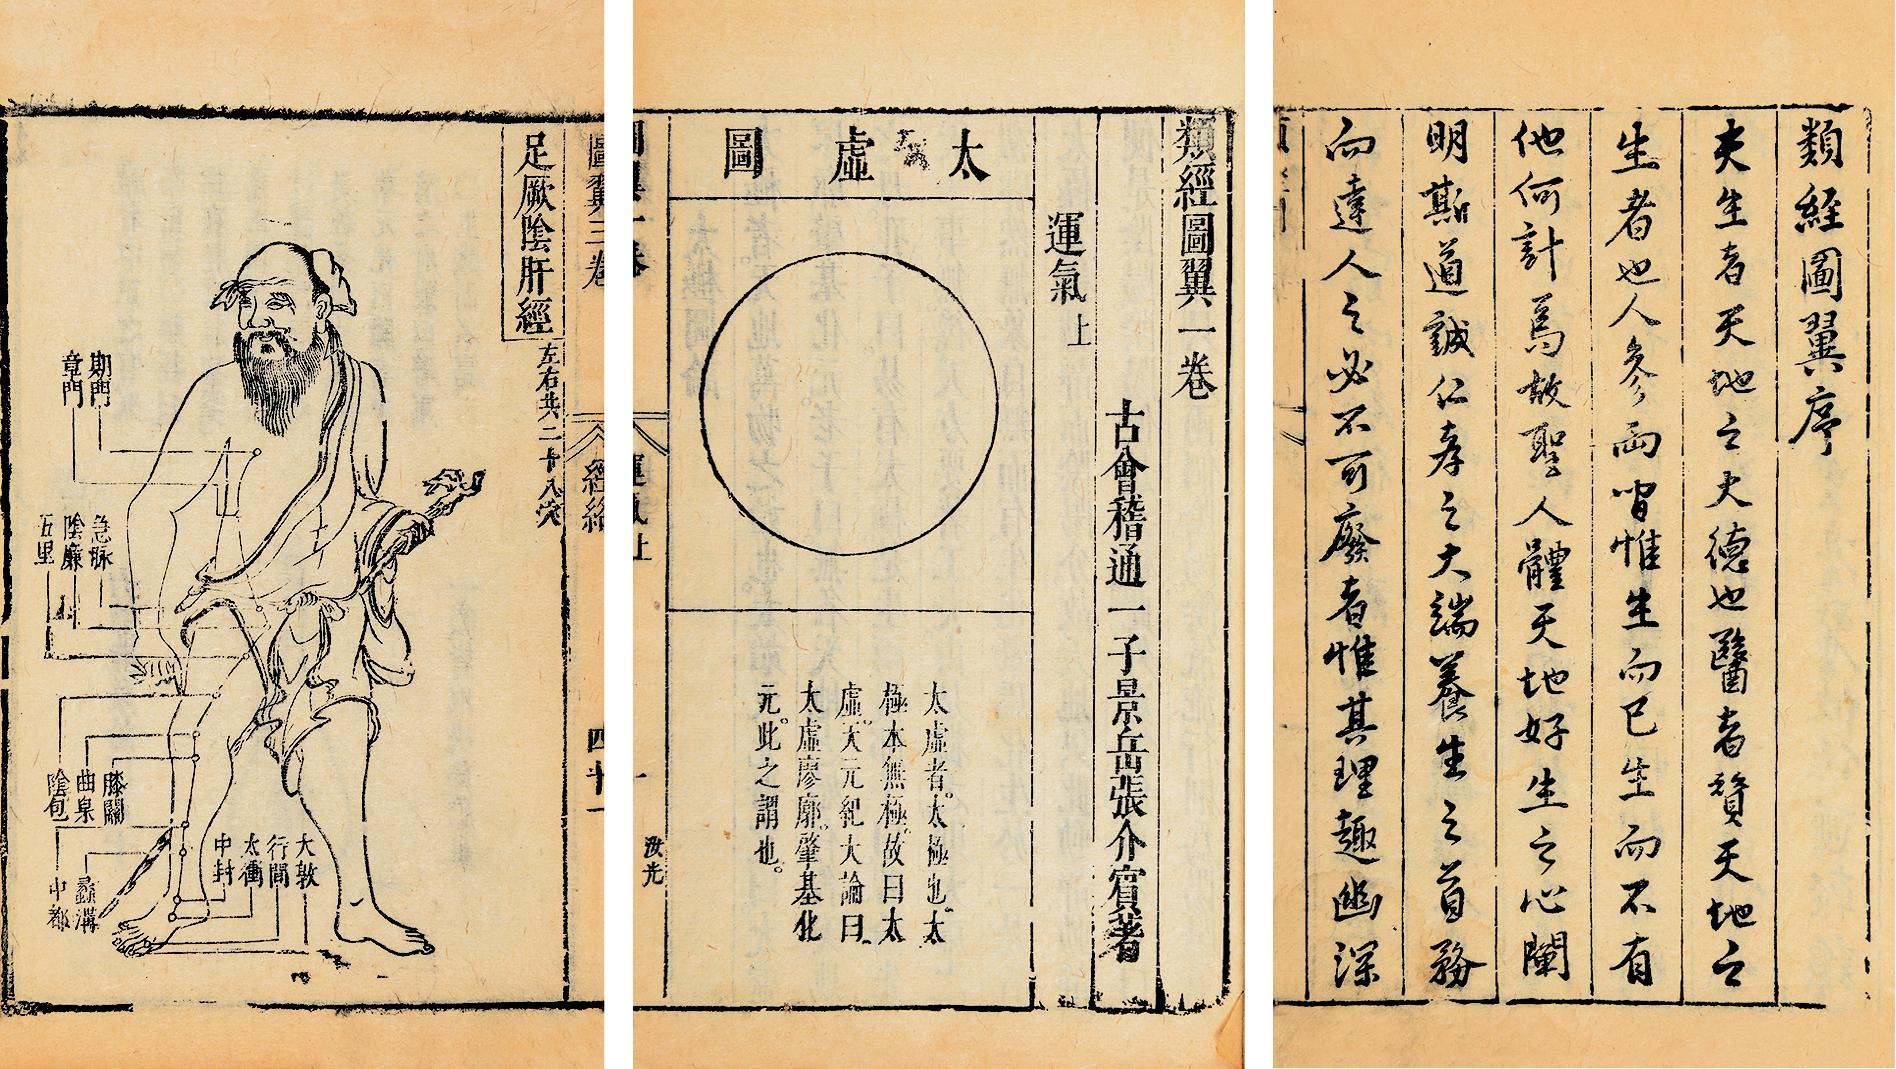 類經圖翼序
夫生者天地之大德也醫者贊天地之
生者也人參兩間惟生而已生而不有
他何計焉故聖人體天地好生之心闡
明斯道誠仁孝之大端養生之首務
而達人之必不可廢者惟其理趣幽深
類經圖翼一卷
古會稽通一子景岳張介賓著
運氣上
太虛圖
太虛者。太極也。太
極本無極。故曰太
虛。天元紀大論曰。
太虛廖廓。肇基化
元。此之謂也。
運氣上
一
汝光
圖翼三卷
經絡
四十一
足厥陰肝經
左右共二十八穴
期門
章門
急脉
陰廉
五里
膝關
曲泉
陰包
大敦
行間
太衝
中封
蠡溝
中都